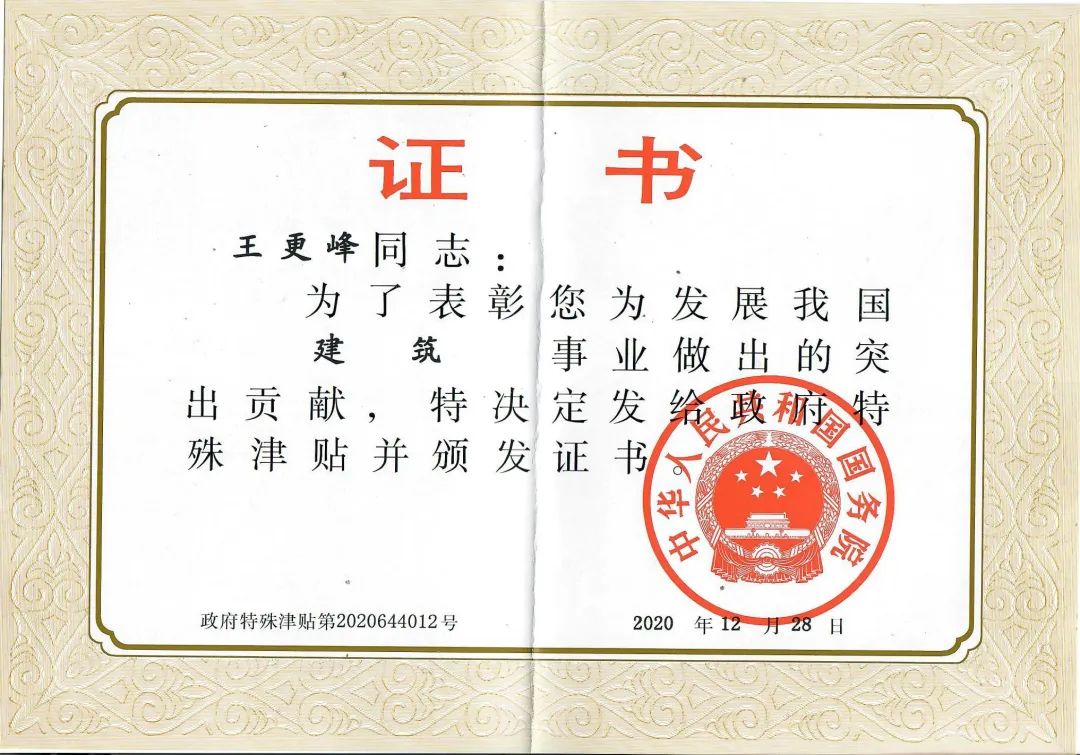 证书
王更峰同志：
为了表彰您为发展我国
建筑事业做出的突
出贡献，特决定发给政府特
殊津贴并颁发证书。
中华人民共和国国务院
政府特殊津贴第2020644012号
2020年12月28日